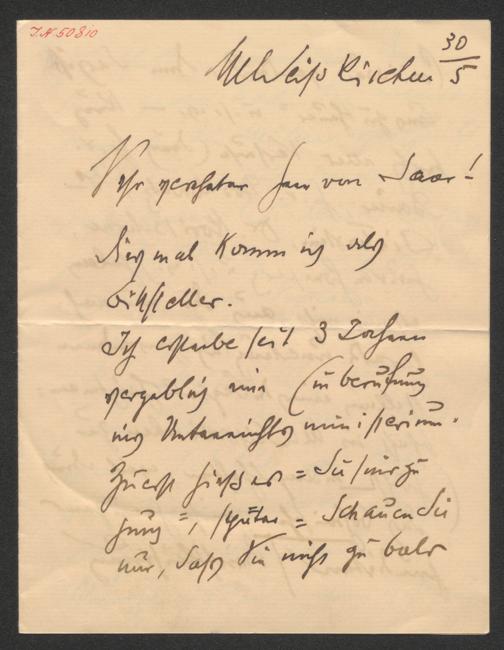 I.N 50810
M Weisskirchen 30/5
Sehr verehrter Herr von Saar!
Diesmal komm ich als
Bittsteller.
Ich erstrebe seit 3 Jahren
vergeblich eine Einberufung
ins Unterrichtsministerium.
Zuerst hiess es = Du bist zu
jung =, später = Schauen Sie
nur, dass Sie nicht zu bald